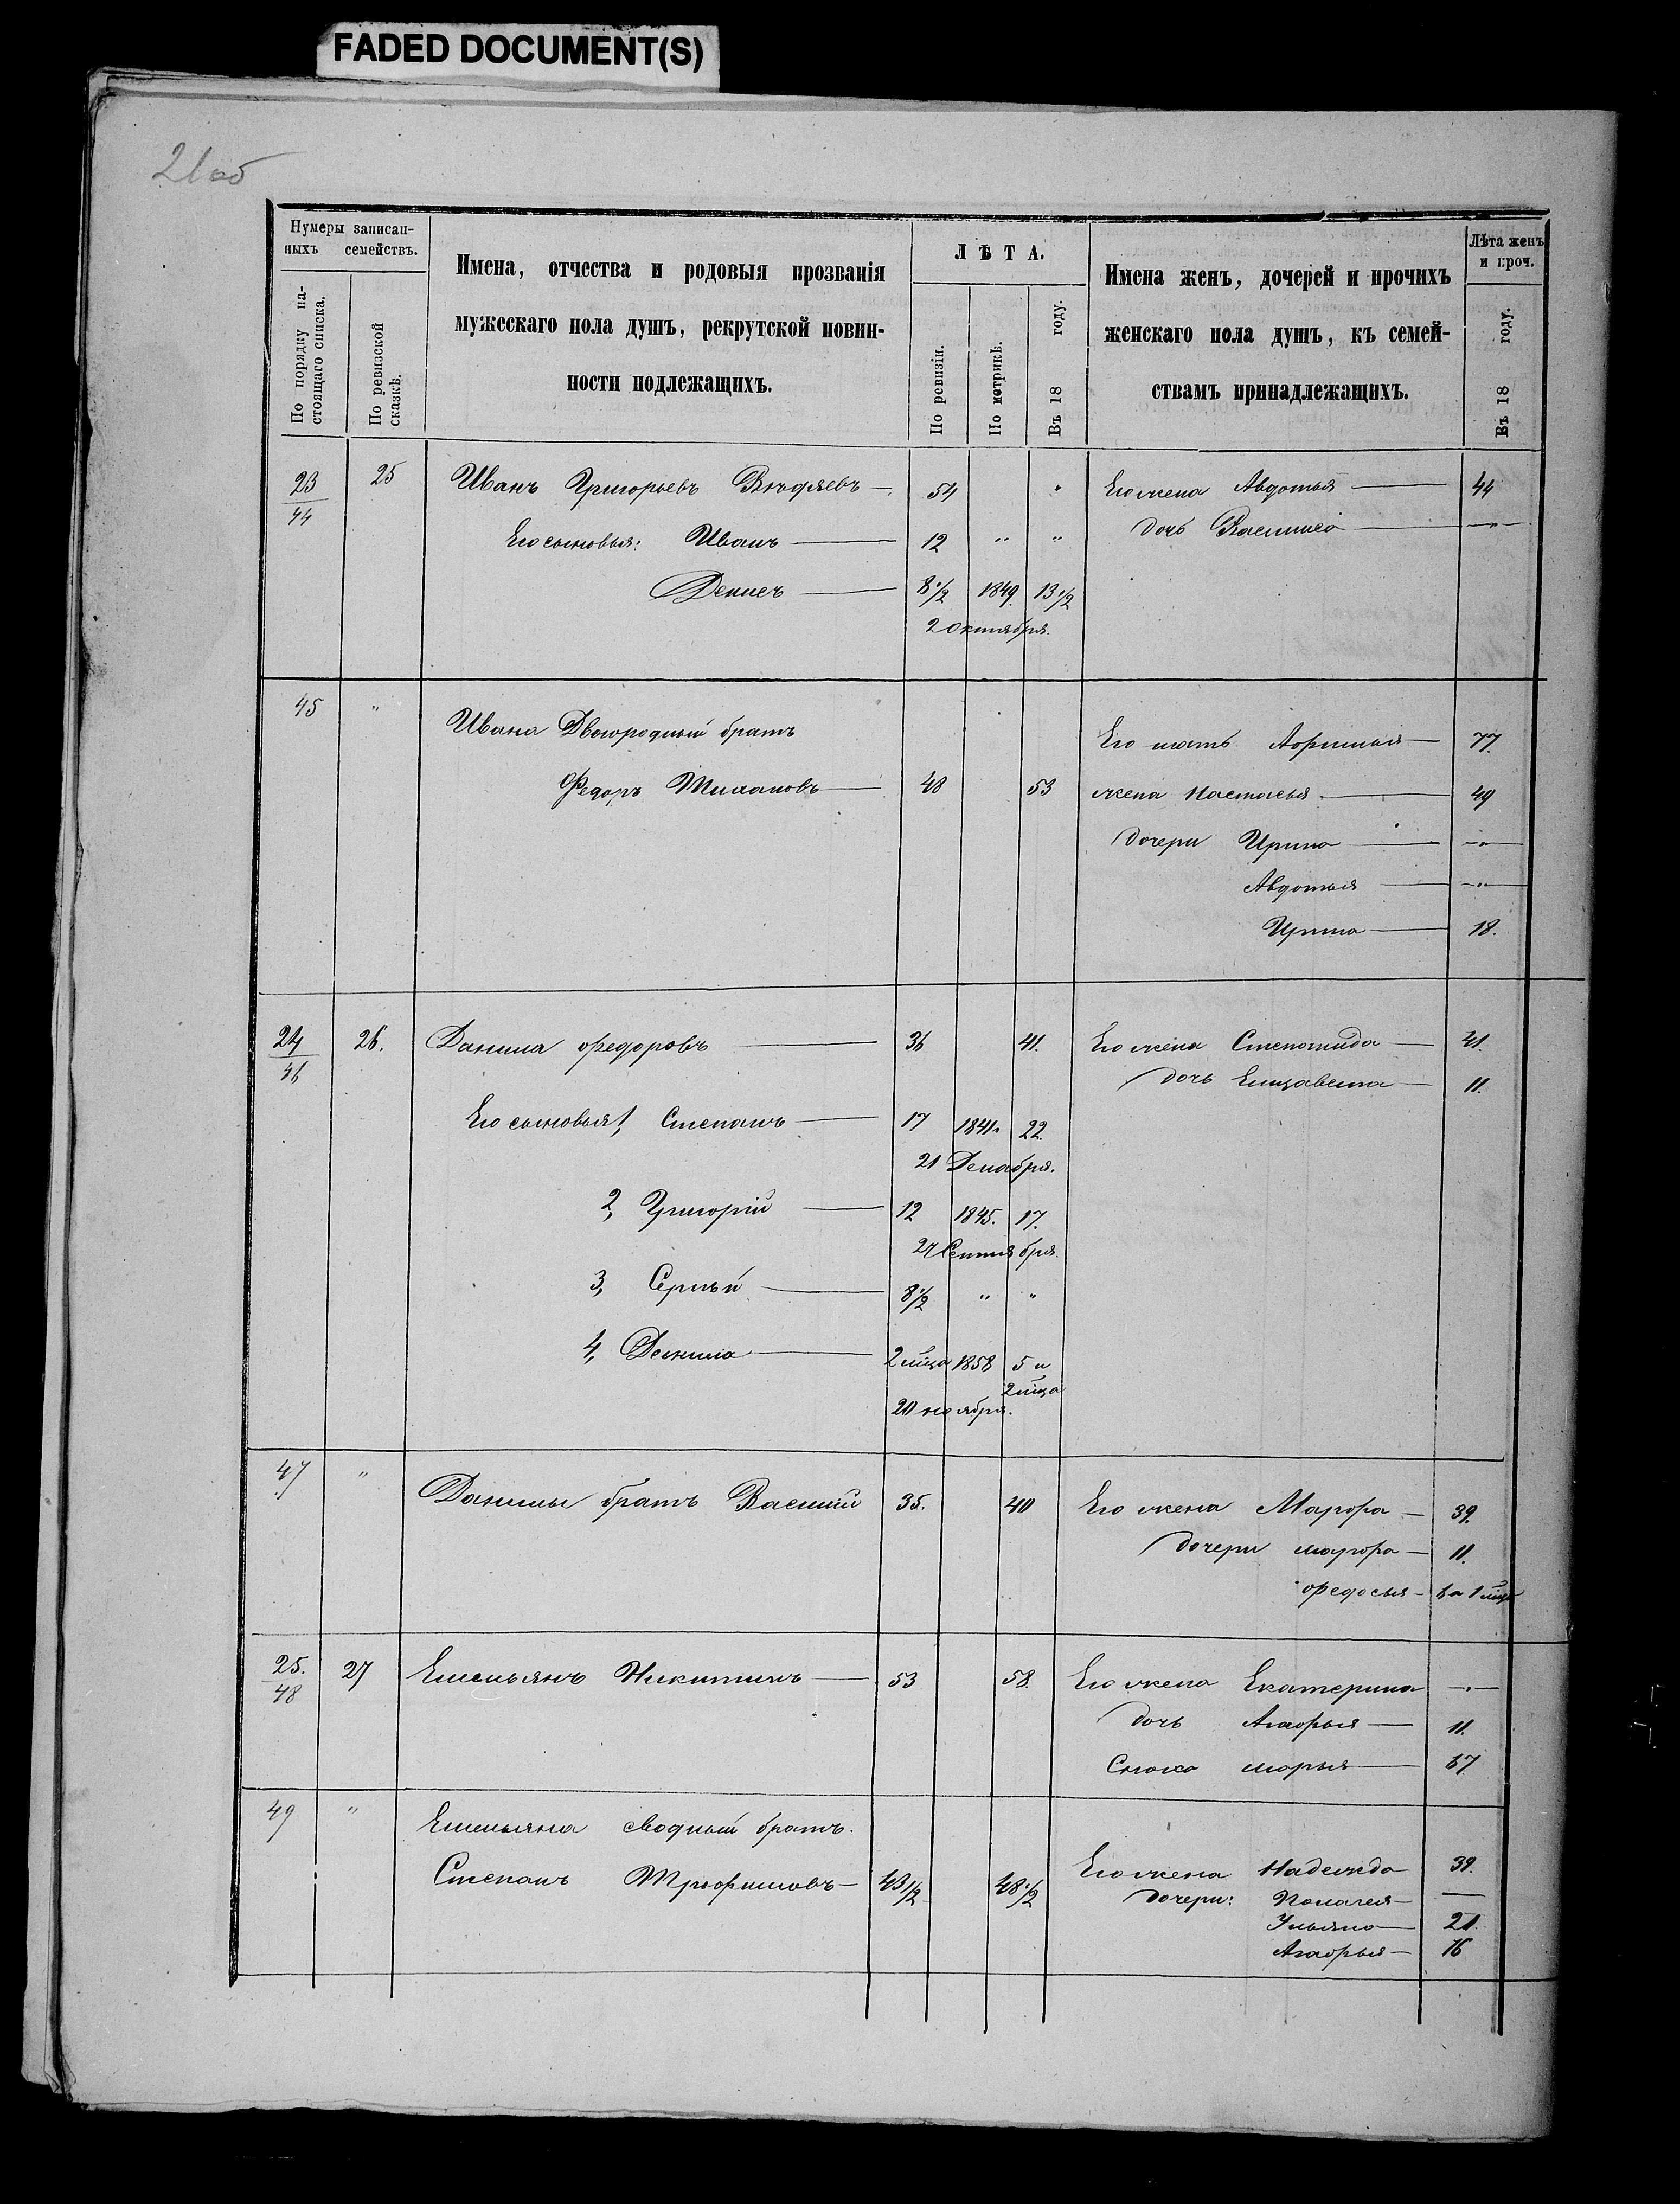 FADED DOCUMENT(S)
21об
Нумеры записан-
ныхъ семействъ.
По порядку на-
стоящаго списка.
По ревизской
сказкѣ.
Имена, отчества и родовыя прозванія
мужескаго пола душъ, рекрутской повин-
ности подлежащихъ.
ЛѢТА.
По ревизіи.
По метрикѣ.
Въ 18 году.
Имена женъ, дочерей и прочихъ
женскаго пола душъ, къ семей-
ствамъ принадлежащихъ.
Лѣта женъ
и проч.
Въ 18 году.
23/44 25 Иванъ Григорьевъ — 54 " Его жена Авдотья — 44
Его сыновья: Иванъ — 12 " " дочь Василиса — "
Денисъ — 8 1/2 1849. 13 1/2
2 октября.
45 " Ивана Двоюродный братъ
Его мать — 77.
Федоръ — 48 53 жена Настасья — 49
дочери Ирина — "
Авдотья — "
Ирина — 18.
24/46 26. Данила Федоровъ — 36 41. Его жена Степанида — 41.
дочь Елизавета — 11.
Его сыновья 1, Степанъ — 17 1841. 22.
21 Декабря.
2, Григорій — 12 1845. 17.
27 Сентября.
3, Сергѣй — 8 1/2 " "
4, Данила — 2 мѣца 1858 5 и
2 мѣца
20 ноября.
47 " Данилы братъ Василій 35. 40 Его жена Марфа — 39.
дочери марфа — 11.
Федосья — 1 мѣца
25./48 27 Емельянъ Никитинъ — 53 58. Его жена Екатерина — " —
дочь Агафья — 11.
Сноха марья —
49 " Емельяна сводный братъ.
Степанъ Трофимовъ — 43 1/2 48 1/2 Его жена Надежда 39.
дочери: Пелагея —
Ульяна — 21.
Агафья — 16